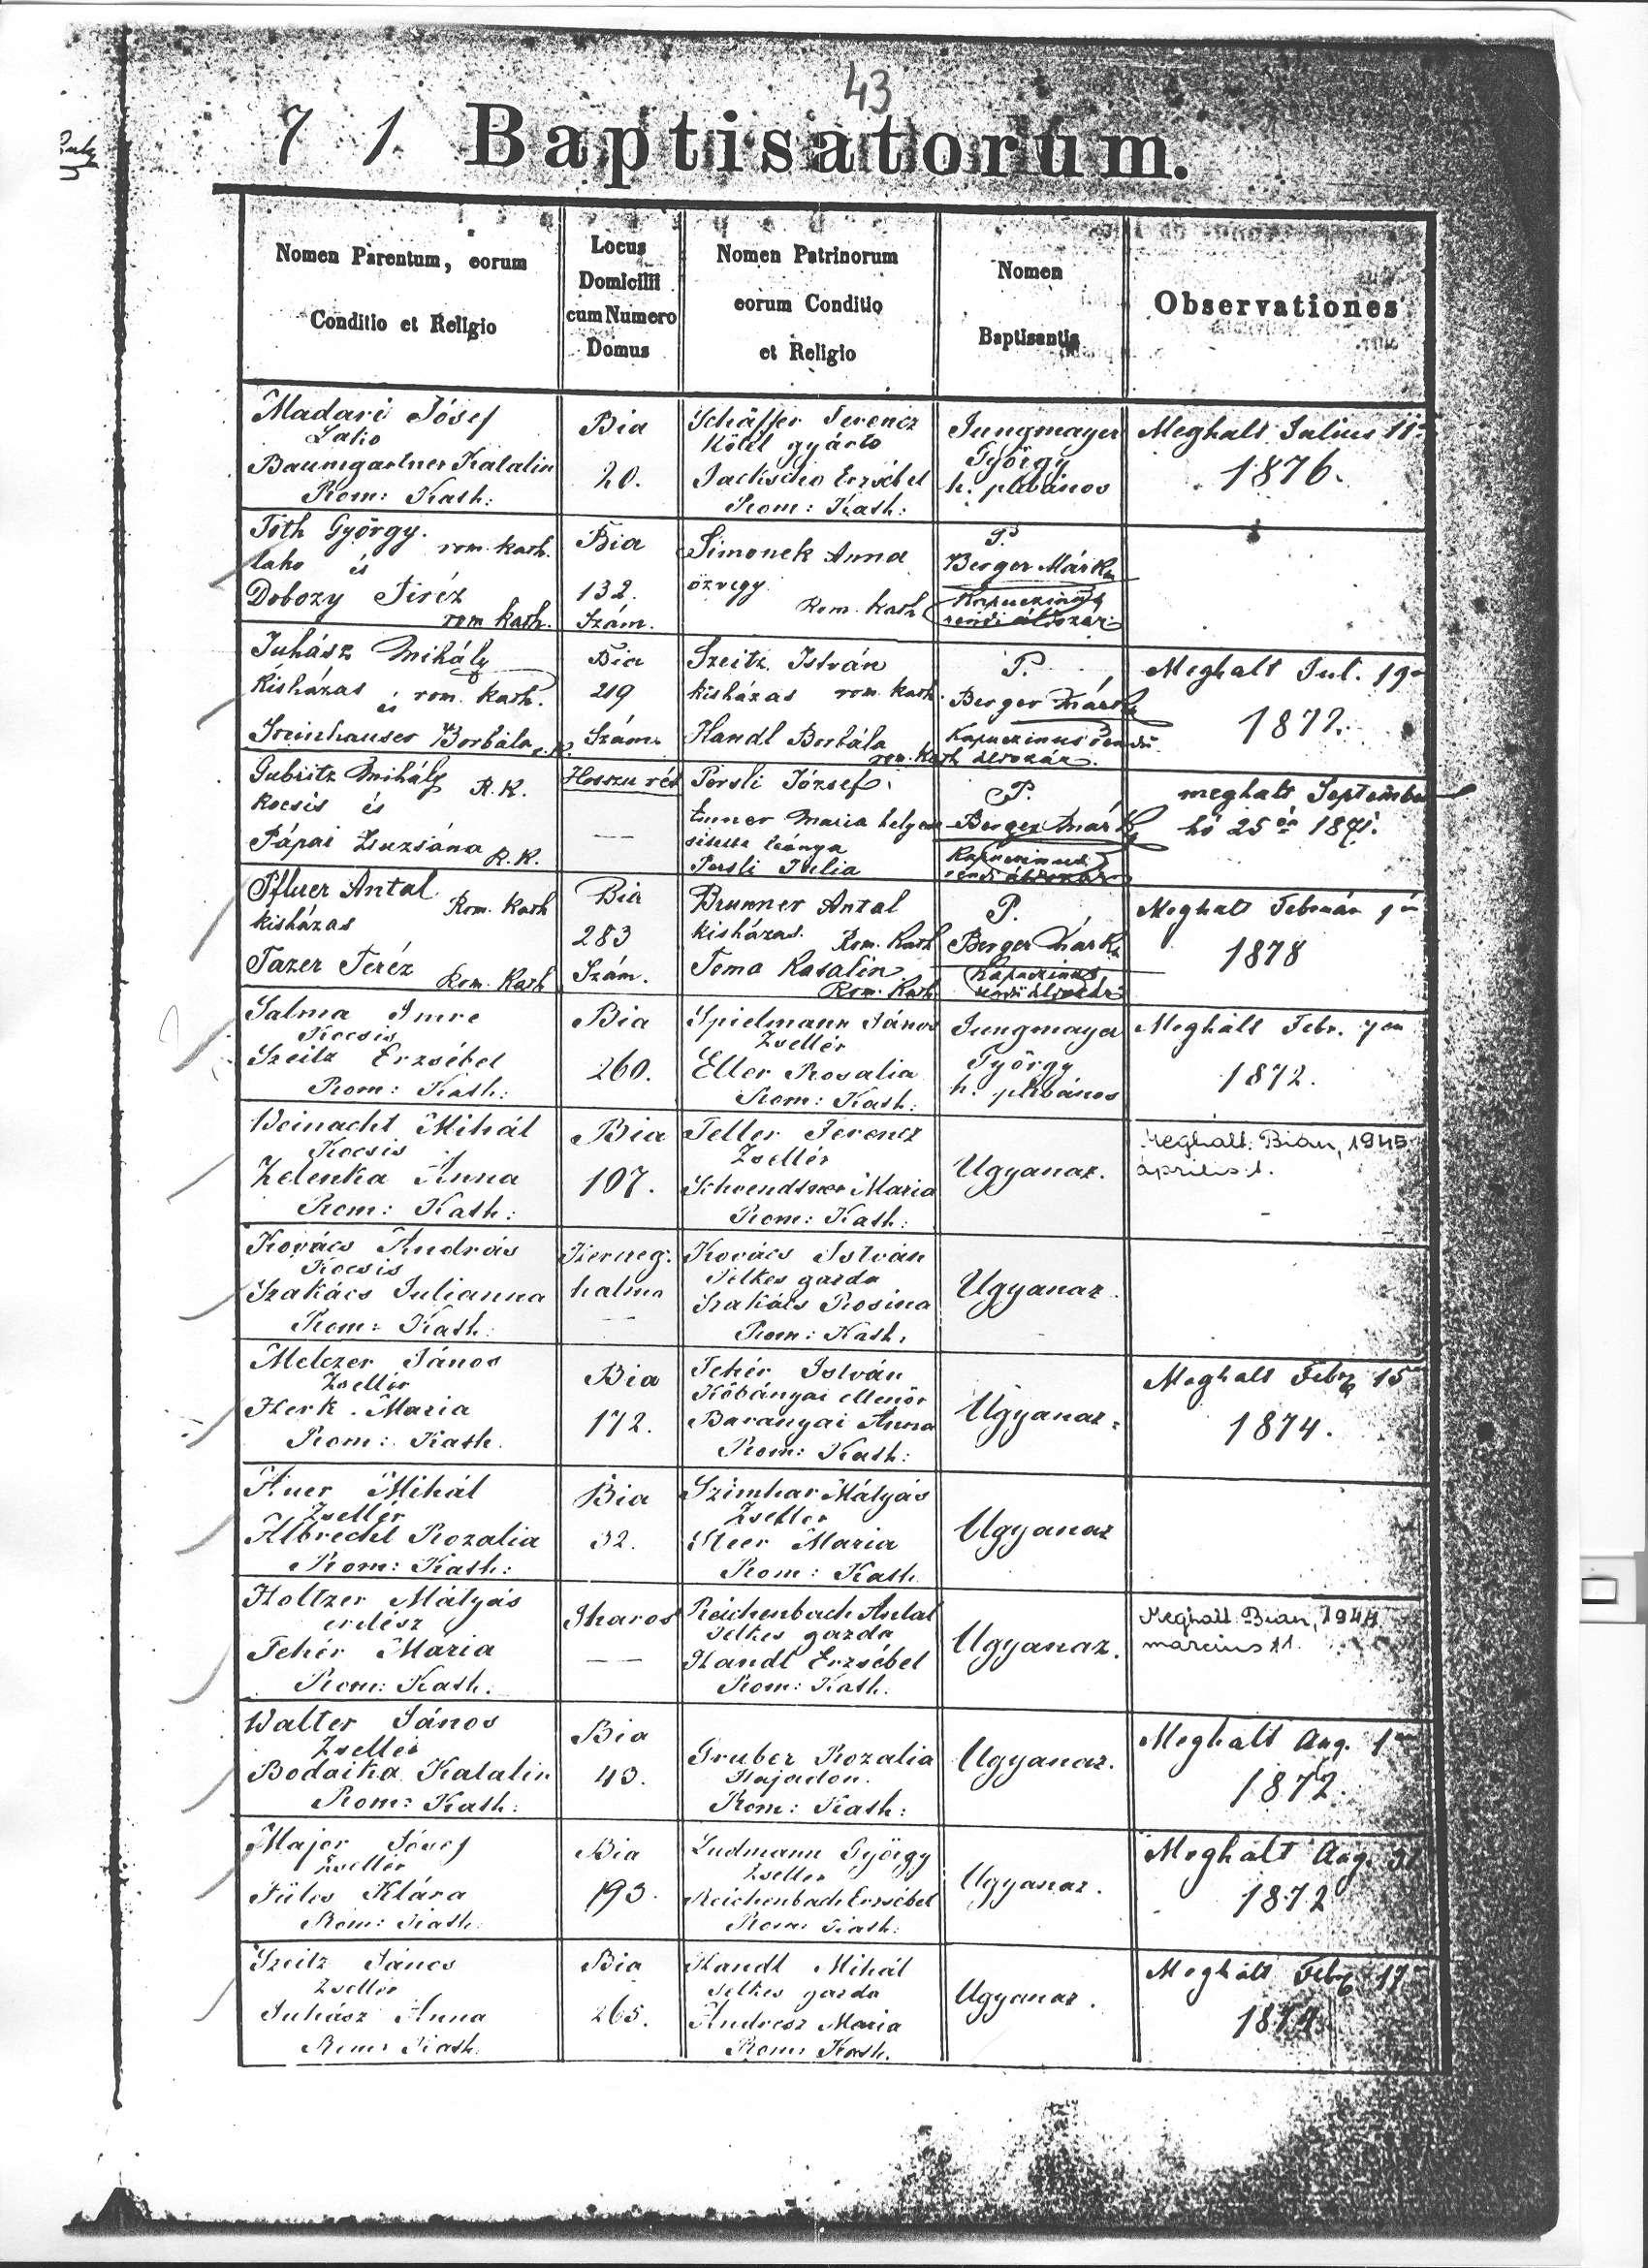 43
7 1. Baptisatorum.
Nomen Parentum, eorum
Conditio et Religio
Locus
Domicilii
cum Numero
Domus
Nomen Patrinorum
eorum Conditio
et Religio
Nomen
Baptisantis
Observationes
Madari Jósef
Lako
Baumgartner Katalin
Rom: Kath:
Bia
20.
Schäffer Ferencz
Kötél gyártó
Erzsébet
Rom: Kath:
Jungmayer
György
h. plébános
Meghalt Julius 11
1876.
Tóth György.
rom. kath.
lako és
Dobozy Teréz
rom. kath.
Bia
132.
Szám.
Simonek Anna
özvegy
Rom. kath
P.
Berger Márk
Kapuczinus
rendi áldozár
Juhász Mihály
kisházas rom. kath.
és
Steinhauser Borbála
Bia
219
Szám.
Szeitz István
kisházas rom. kath.
Handl Borbála
rom. Kath
P.
Berger Márk
Kapuczinus rendi
áldozár.
Meghalt Jul. 19
1872.
Gubritz Mihály R.K.
kocsis és
Pápai Zsuzsána R.K.
Hosszu rét
Persli József
Maria helyett
leánya
Persli Julia
P.
Berger Márk
Kapuczinus
rendi áldozár
meghalt September
hó 25én 1871.
Pfluer Antal
Rom. Kath
kisházas
Fazer Teréz
Rom. Kath
Bia
283
Szám.
Brunner Antal
kisházas. Rom. Kath
Toma Katalin
Rom. Kath
P.
Berger Márk
Kapuczinus
rendi áldozár
Meghalt Február 1én
1878
Salma Imre
Kocsis
Szeitz Erzsébet
Rom: Kath:
Bia
260.
Spielmann János
Zsellér
Eller Rosalia
Rom: Kath:
Jungmayer
György
h. plébános
Meghalt Febr. 7én
1872.
Weinacht Mihál
Kocsis
Zelenka Anna
Rom: Kath:
Bia
107.
Feller Ferencz
Zsellér
Maria
Rom: Kath:
Ugyanaz.
Meghalt: Bián, 1945
április 1.
Kovács András
Kocsis
Szakács Julianna
Rom: Kath:
Herczeg:
halma
Kovács István
Telkes gazda
Szakács Rosina
Rom: Kath:
Ugyanaz.
Melczer János
Zsellér
Herk Maria
Rom: Kath.
Bia
172.
Fehér István
Kőbányai ellenőr
Baranyai Anna
Rom: Kath:
Ugyanaz
Meghalt Febr 15
1874.
Auer Mihál
Zsellér
Albrecht Rozalia
Rom: Kath:
Bia
32.
Szimhar Mátyás
Zsellér
Steer Maria
Rom: Kath.
Ugyanaz
Holtzer Mátyás
erdész
Fehér Maria
Rom: Kath.
Iharos
Reichenbach Antal
Telkes gazda
Handl Erzsébet
Rom: Kath.
Ugyanaz.
Meghalt: Bián, 1944
március 11.
Walter János
Zsellér
Bodaika Katalin
Rom: Kath:
Bia
43.
Gruber Rozalia
Hajadon.
Rom: Kath:
Ugyanaz.
Meghalt Aug. 1
1872.
Major Jósef
Zsellér
Fülöp Klára
Rom: Kath.
Bia
193.
Ludmann György
Zsellér
Reichenbach Erzsébet
Rom: Kath.
Ugyanaz.
Meghalt Aug. 31
1872
Szeitz János
Zsellér
Juhász Anna
Rom: Kath.
Bia
265.
Handl Mihál
Telkes gazda
Andresz Maria
Rom: Kath.
Ugyanaz.
Meghalt Febr 17
1874.